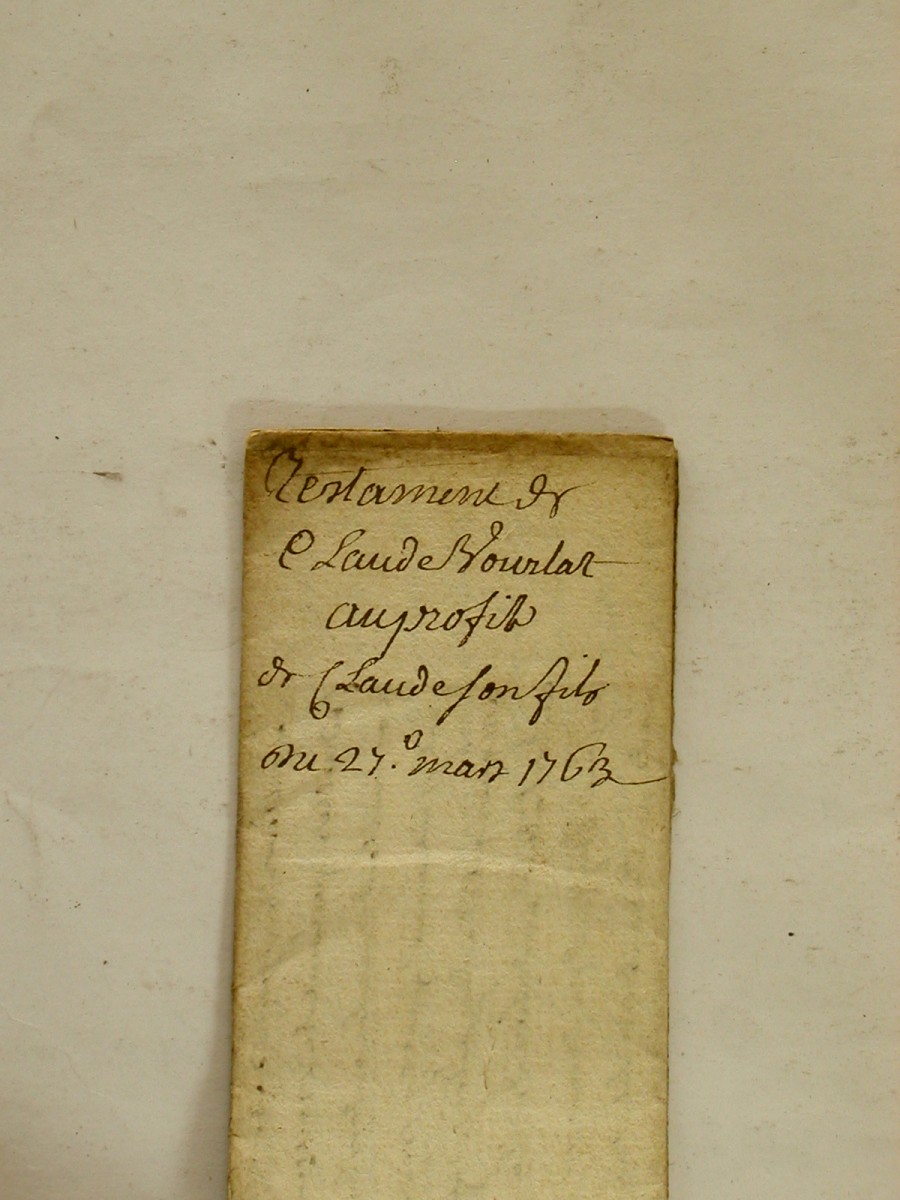 Testament de
Claude Vourlat
au profit
de Claude son fils
du 27.e mars 1763